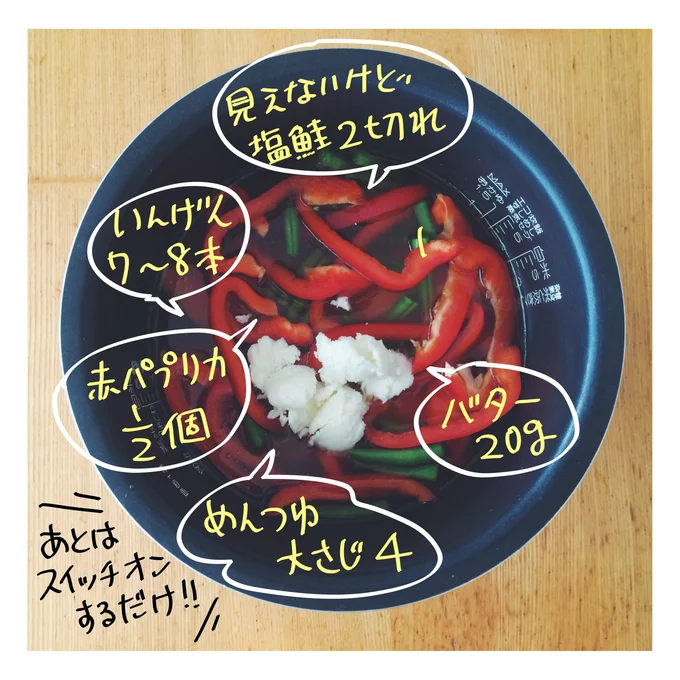 見えないけど
塩鮭2切れ
いんげん
7〜8本
赤パプリカ
1/2個
バター
20g
めんつゆ
大さじ4
あとは
スイッチオン
するだけ!!
白米